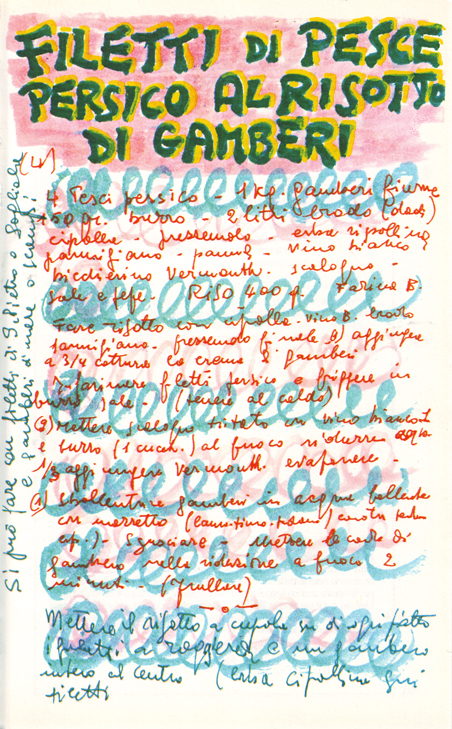 FILETTI DI PESCE
PERSICO AL RISOTTO
DI GAMBERI
(4).
4 Pesci persico - 1 kg. gamberi fiume
150 gr. burro - 2 litri brodo (dadi)
cipolla - prezzemolo - erba cipollina
parmigiano - panna - vino bianco
bicchierino Vermouth. scalogno -
sale e pepe. RISO 400 g. Farina B.
Fare risotto con cipolla - vino B. brodo
parmigiano - prezzemolo aggiungere
a 3/4 cottura la crema di gamberi
Infarinare filetti persico e friggere in
burro, sale (tenere al caldo)
2) Mettere scalogno tritato con vino bianco
e burro (1 cucc.) al fuoco ridurre
1/3 aggiungere Vermouth. evaporare -
1) Sbollentare gamberi in acqua bollente
con mazzetto (lauro-timo
cip.) - Sgusciare Mettere le code di
gambero nella riduzione a fuoco 2
minuti (frullare)
Mettere il risotto a cupola su di ogni piatto
i filetti a raggera e un gambero
intero al centro (erba cipollina sui
filetti
Si può fare con filetti di S. Pietro o Sogliole
e gamberi di mare o scampi